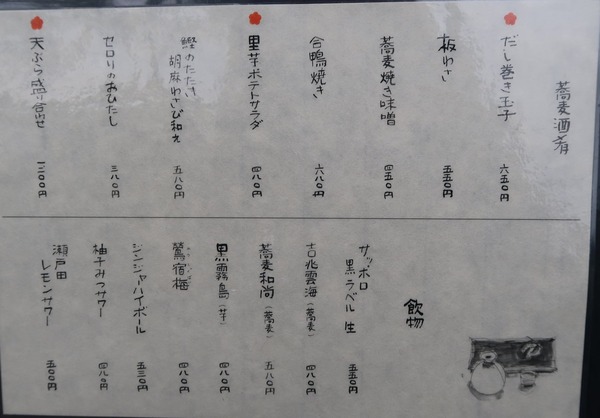 蕎麦酒肴
だし巻き玉子 六五0円
板わさ 五五0円
蕎麦焼き味噌 四五0円
合鴨焼き 六八0円
里芋ポテトサラダ 四八0円
鰹のたたき
胡麻わさび和え 五八0円
セロリのおひたし 三八0円
天ぷら盛り合わせ 一二00円
飲物
サッポロ
黒ラベル 生 五五0円
吉兆雲海(蕎麦) 四八0円
蕎麦和尚(蕎麦) 五八0円
黒霧島(芋) 四八0円
鶯宿梅 四八0円
ジンジャーハイボール 五三0円
柚子みつサワー 四八0円
瀬戸田
レモンサワー 五00円